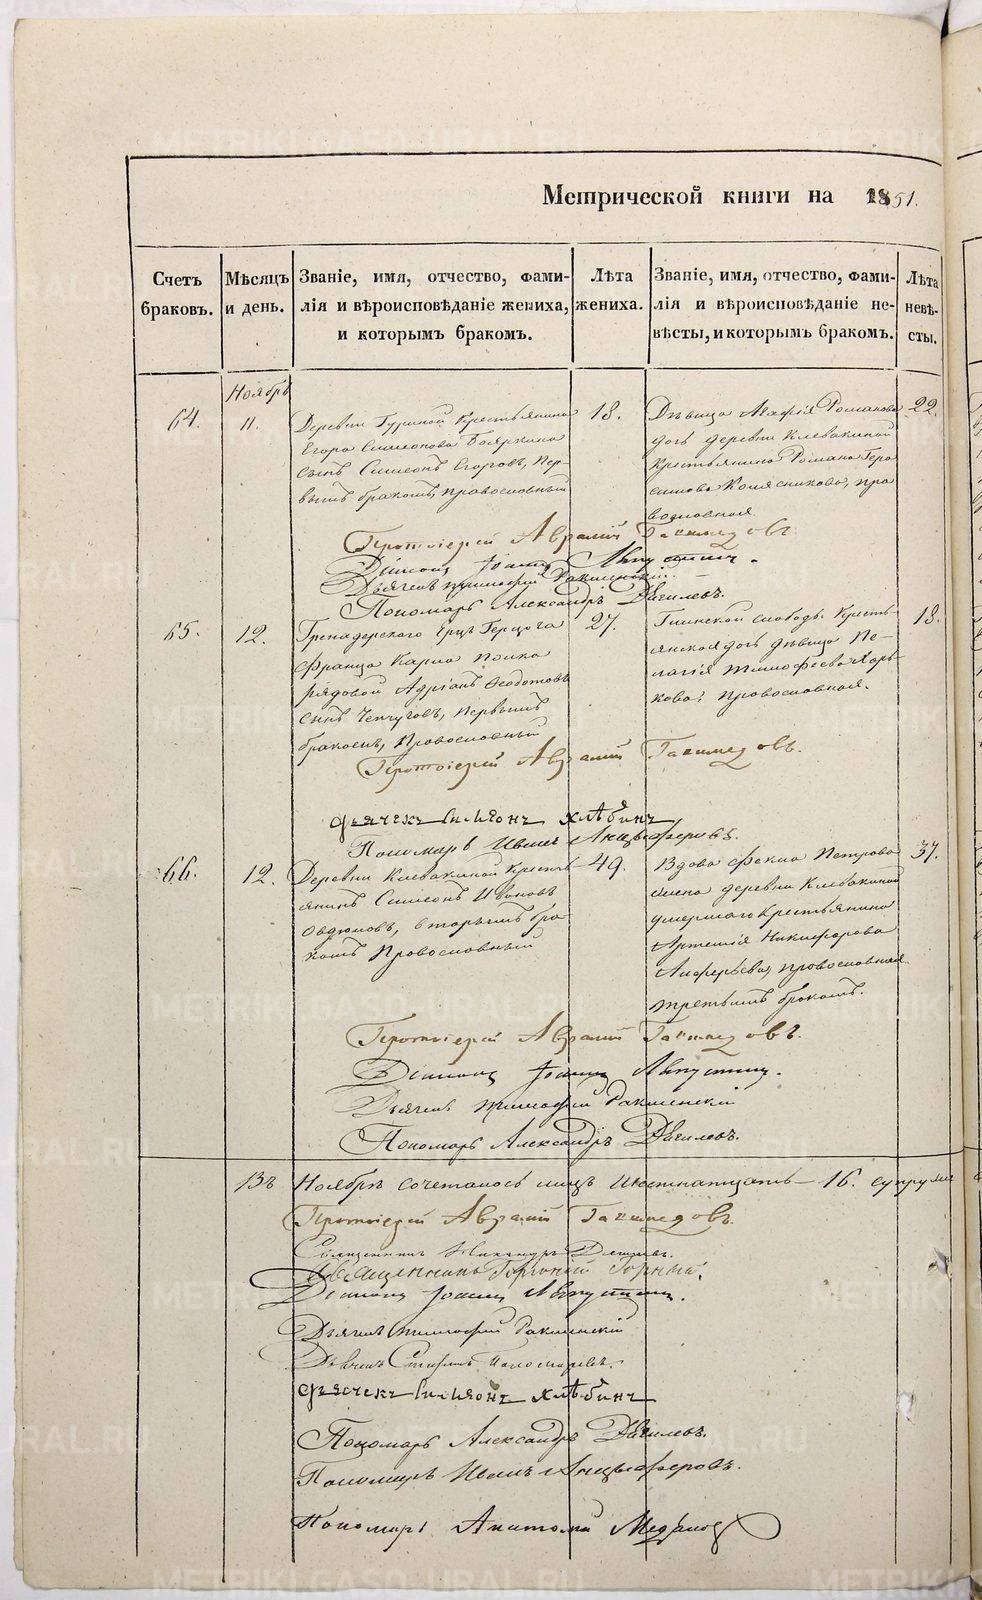 Метрической книги на 1851.
Счетъ браковъ.
Мѣсяцъ и день.
Званіе, имя, отчество, фами-
лія и вѣроисповѣданіе жениха,
и которымъ бракомъ.
Лѣта жениха.
Званіе, имя, отчество, фами-
лія и вѣроисповѣданіе не-
вѣсты, и которымъ бракомъ.
Лѣта невѣ-
сты.
Ноябрь
64.
11.
Деревни Гуриной Крестьянина
Егора Симеонова Бояркина
сынъ Симеонъ Егоровъ, пер-
вымъ бракомъ, православный
18.
Дѣвица Агафія Романова
дочь деревни Клевакиной
Крестьянина Романа Гера
симова Колясникова, пра
вославная
22.
Протоіерей Авраамій
Діаконъ Іоаннъ
Дьячекъ Тимофей
Пономарь Александръ Дягилевъ.
65.
12.
Гренадерскаго Ерцъ Герцога
Франца Карла полка
рядовой Адріанъ Ѳедотовъ
сынъ Чепчуговъ, первымъ
бракомъ, Православный
27.
Глинской слободы Кресть-
янская дочь дѣвица Пе-
лагія Тимофеева
кова, православная.
18.
Протоіерей Авраамій
Дьячекъ Симеонъ Хлѣбинъ
Пономарь Иванъ Анцыферовъ.
66.
12.
Деревни Клевакиной Кресть-
янинъ Симеонъ Ивановъ
Овдюковъ, вторымъ бра-
комъ Православный
49.
Вдова Фекла Петрова
жена деревни Клевакиной
умершаго Крестьянина
Артемія Никифорова
Алферьева, православная
третьимъ бракомъ.
37.
Протоіерей Авраамій
Діаконъ Іоаннъ
Дьячекъ Тимофей
Пономарь Александръ Дягилевъ.
Въ Ноябрѣ сочеталось лицъ шестнатцать – 16. супру
Протоіерей Авраамій
Священникъ
Священникъ Горный.
Діаконъ Іоаннъ
Дьячекъ Тимофей
Дьячекъ Стефанъ Пономаревъ.
Дьячекъ Симеонъ Хлѣбинъ
Пономарь Александръ Дягилевъ.
Пономарь Иванъ Анцыферовъ.
Пономарь Анатолій
METRIKI.GASO-URAL.RU